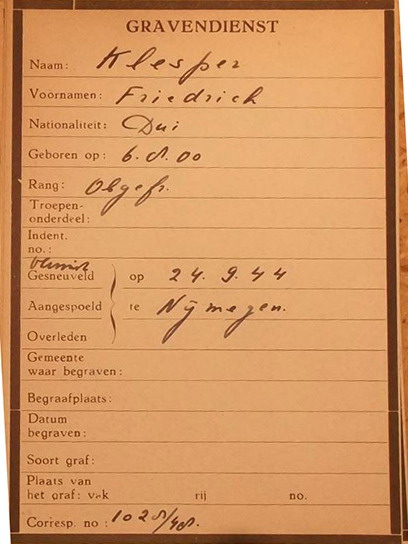 GRAVENDIENST
Naam: Klesper
Voornamen: Friedrich
Nationaliteit: Dui
Geboren op: 6.8.00
Rang: Obgefr.
Troepen-
onderdeel:
Indent.
no.:
Vermist
Gesneuveld op 24.9.44
Aangespoeld te Nijmegen.
Overleden
Gemeente
waar begraven:
Begraafplaats:
Datum
begraven:
Soort graf:
Plaats van
het graf: vak rij no.
Corresp. no: 1028/48.